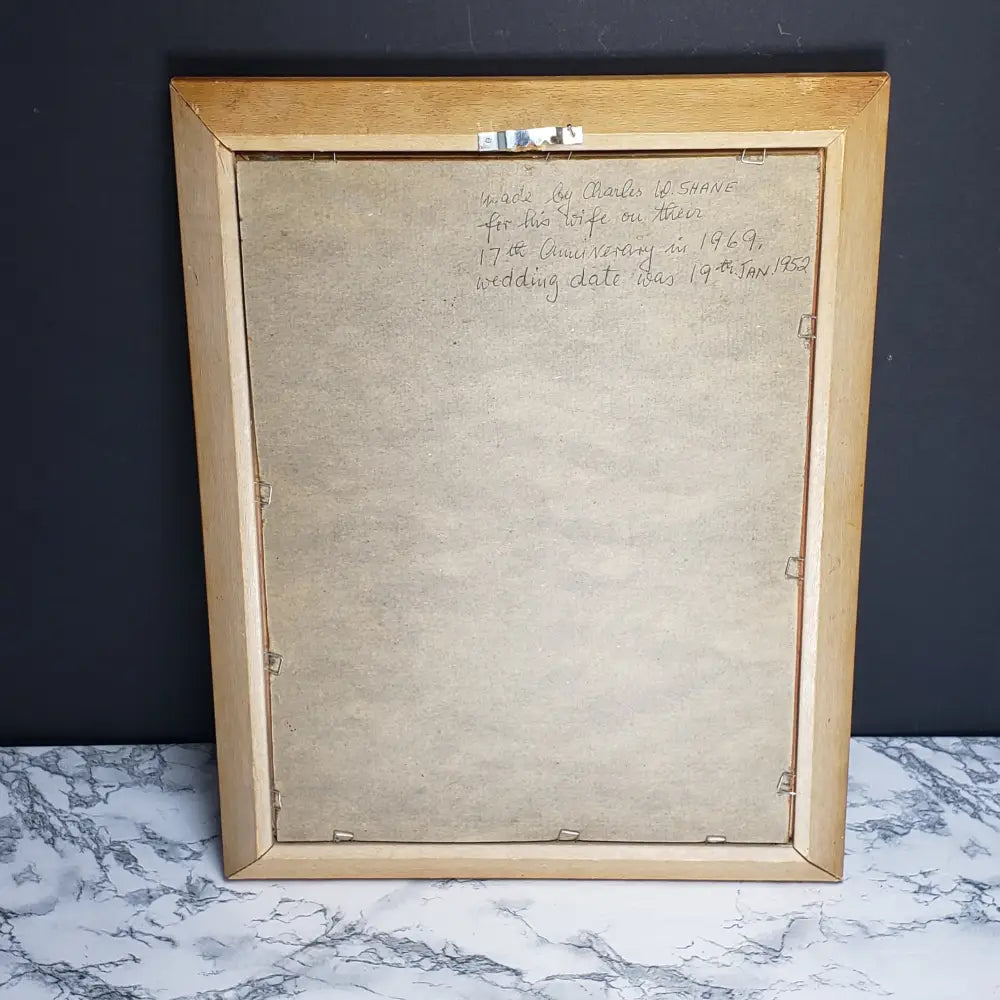 made by Charles W. SHANE
for his wife on their
17th Anniverary in 1969.
wedding date was 19th JAN 1952